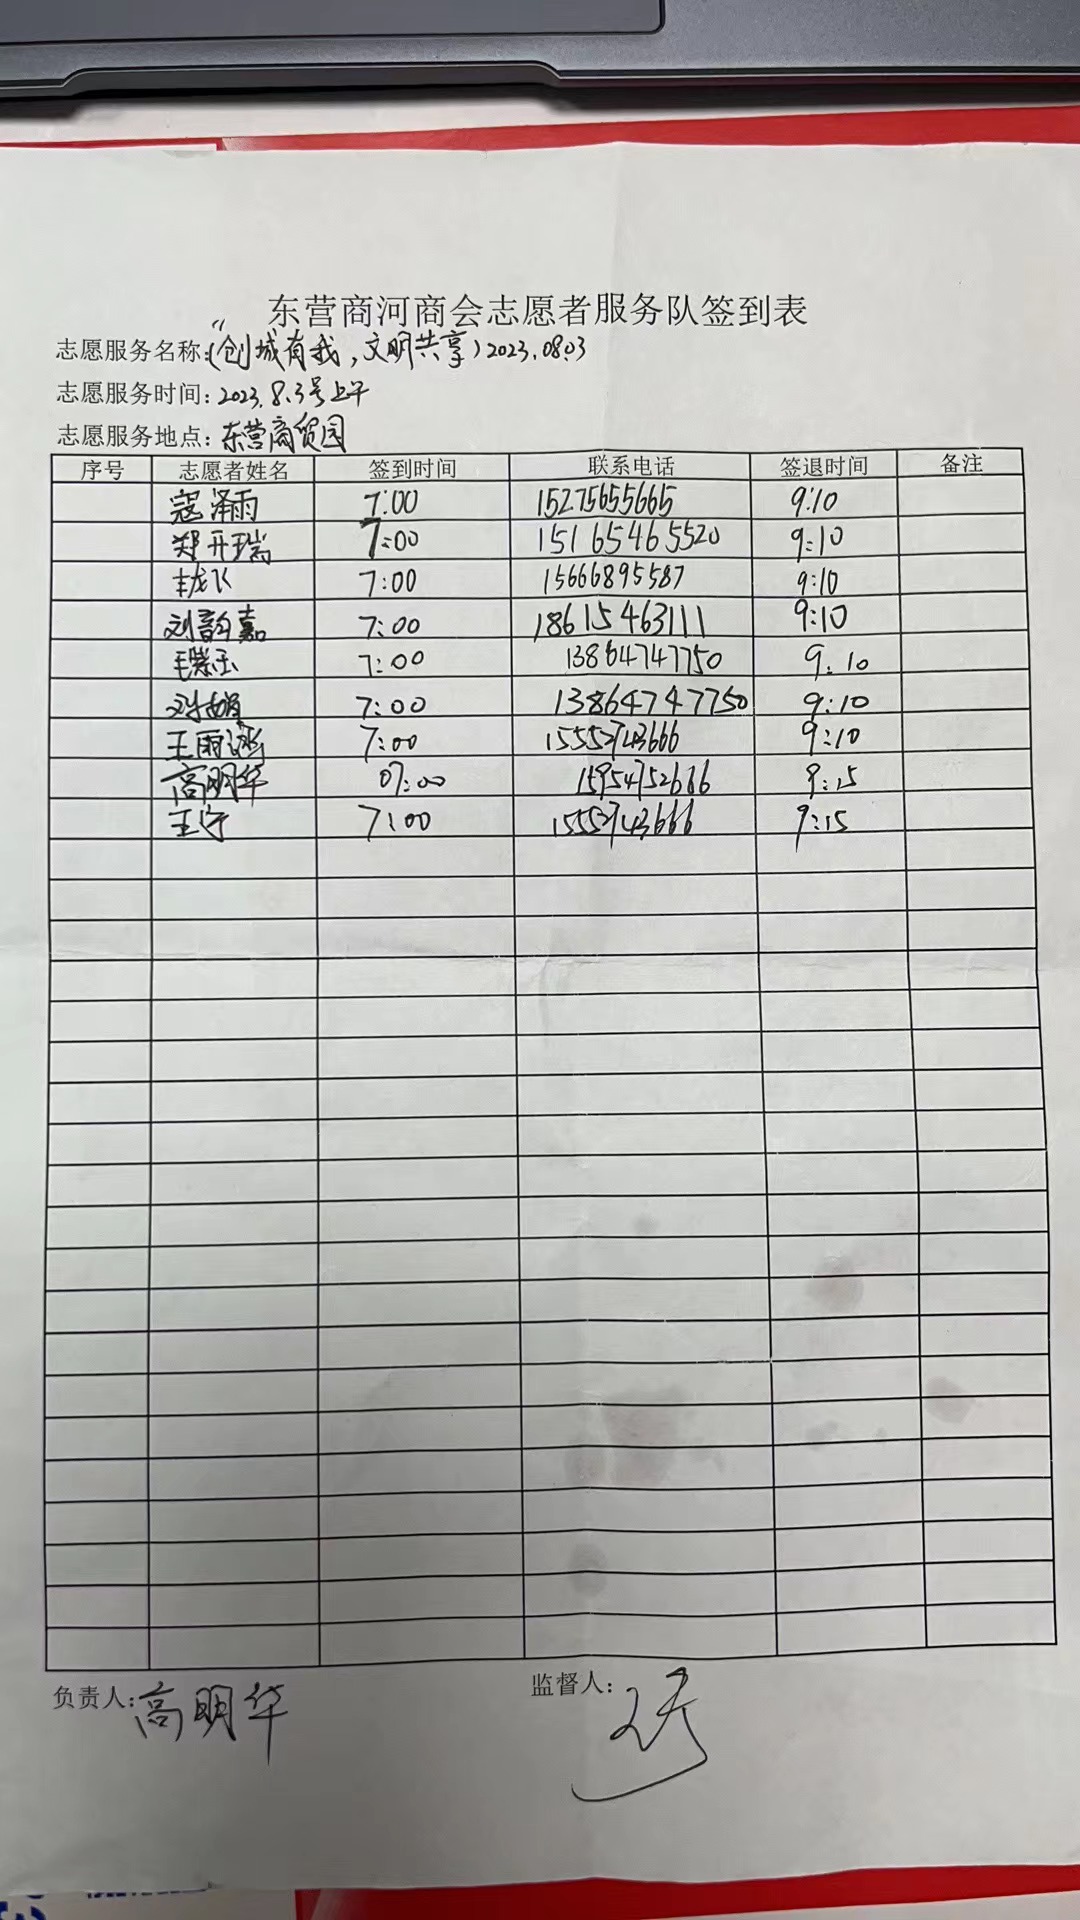 东营商河商会志愿者服务队签到表
志愿服务名称:(“创城有我,文明共享)2023.08.03
志愿服务时间:2023.8.3号上午
志愿服务地点:东营商贸园
序号 志愿者姓名 签到时间 联系电话 签退时间 备注
寇泽雨 7:00 15275655665 9:10
郑开瑞 7:00 15165465520 9:10
7:00 15666895587 9:10
刘韵嘉 7:00 18615463111 9:10
7:00 13864747750 9:10
刘娟 7:00 13864747750 9:10
王雨涵 7:00 15552743666 9:10
高明华 07:00 15954752666 9:15
王宁 7:00 15552743666 9:15
负责人:高明华 监督人: